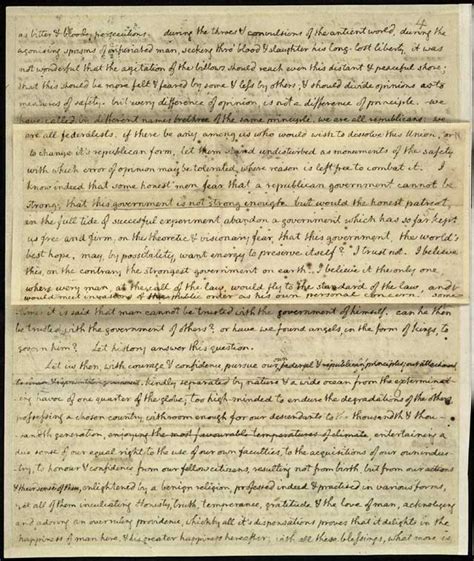 4
as bitter & bloody persecutions. during the throes & convulsions of the antient world, during the
agonising spasms of infuriated man, seeking thro' blood & slaughter his long-lost liberty, it was
not wonderful that the agitation of the billows should reach even this distant & peaceful shore;
that this should be more felt & feared by some & less by others; & should divide opinions as to
measures of safety. but every difference of opinion, is not a difference of principle. we
have called by different names brethren of the same principle. we are all republicans: we
are all federalists. if there be any among us who would wish to dissolve this Union, or
to change it's republican form, let them stand undisturbed as monuments of the safety
with which error of opinion may be tolerated, where reason is left free to combat it. I
know indeed that some honest men fear that a republican government cannot be
strong; that this government is not strong enough. but would the honest patriot,
in the full tide of successful experiment abandon a government which has so far kept
us free and firm, on the theoretic & visionary fear, that this government, the world's
best hope, may, by possibility, want energy to preserve itself? I trust not. I believe
this, on the contrary, the strongest government on earth. I believe it the only one,
where every man, at the call of the law, would fly to the standard of the law, and
would meet invasions of the public order as his own personal concern. some
times it is said that man cannot be trusted with the government of himself. can he then
be trusted with the government of others? or have we found angels in the form of kings, to
govern him? Let history answer this question.
Let us then, with courage & confidence, pursue our own federal & republican principles; our attachment
to union & representative government. kindly separated by nature & a wide ocean from the exterminat-
ing havoc of one quarter of the globe; too high-minded to endure the degradations of the others,
possessing a chosen country, with room enough for our descendants to the thousandth & thou-
sandth generation, enjoying the most favourable temperatures of climate, entertaining a
due sense of our equal right to the use of our own faculties, to the acquisitions of our own indus-
try, to honour & confidence from our fellow citizens, resulting not from birth, but from our actions
& their sense of them, enlightened by a benign religion, professed indeed & practised in various forms,
yet all of them inculcating honesty, truth, temperance, gratitude & the love of man, acknoleging
and adoring an overruling providence, which by all it's dispensations proves that it delights in the
happiness of man here, & his greater happiness hereafter; with all these blessings, what more is